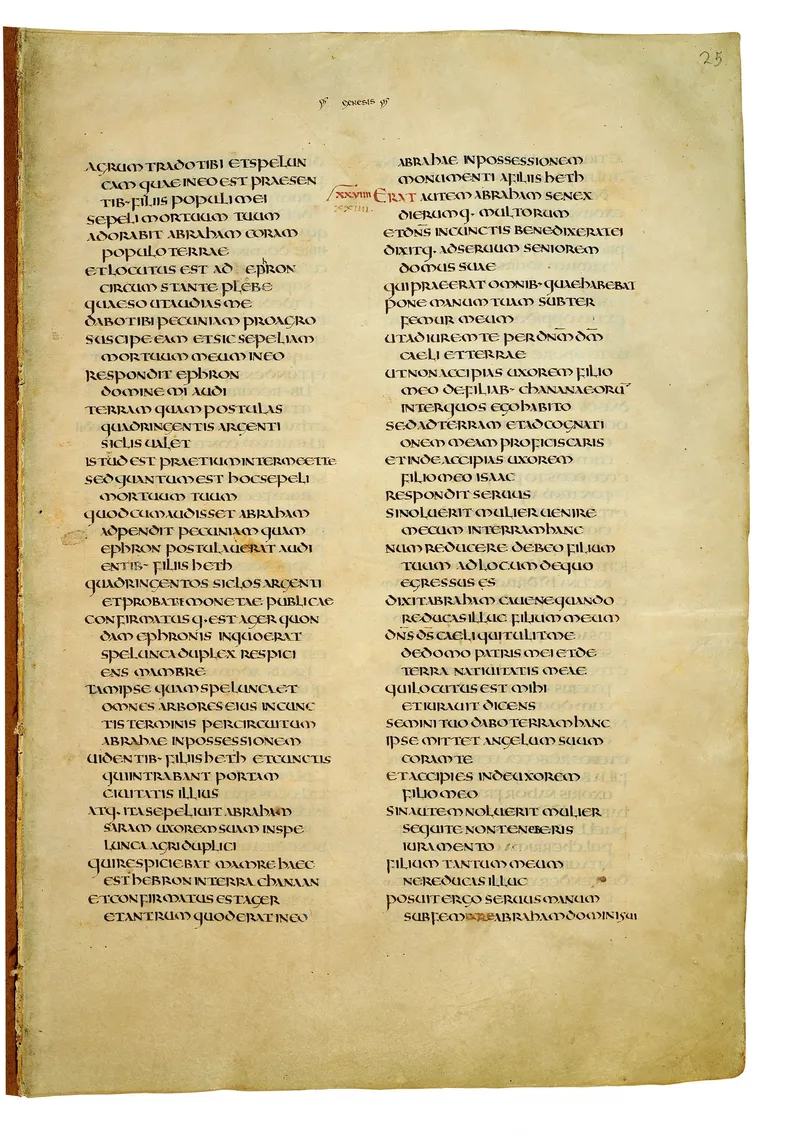 25
GENESIS
AGRUM TRADO TIBI ET SPELUN
CAM QUAE IN EO EST PRAESEN
TIB· FILIIS POPULI MEI
SEPELI MORTUUM TUUM
ADORABIT ABRAHAM CORAM
POPULO TERRAE
ET LOCUTUS EST AD EPHRON
CIRCUM STANTE PLEBE
QUAESO UT AUDIAS ME
DABO TIBI PECUNIAM PRO AGRO
SUSCIPE EAM ET SIC SEPELIAM
MORTUUM MEUM IN EO
RESPONDIT EPHRON
DOMINE MI AUDI
TERRAM QUAM POSTULAS
QUADRINGENTIS ARGENTI
SICLIS UALET
ISTUD EST PRAETIUM INTER ME ET TE
SED QUANTUM EST HOC SEPELI
MORTUUM TUUM
QUOD CUM AUDISSET ABRAHAM
ADPENDIT PECUNIAM QUAM
EPHRON POSTULAUERAT AUDI
ENTIB· FILIIS HETH
QUADRINGENTOS SICLOS ARGENTI
ET PROBATE MONETAE PUBLICAE
CONFIRMATUSQ· EST AGER QUON
DAM EPHRONIS IN QUO ERAT
SPELUNCA DUPLEX RESPICI
ENS MAMBRE
TAM IPSE QUAM SPELUNCA ET
OMNES ARBORES EIUS IN CUNC
TIS TERMINIS PER CIRCUITUM
ABRAHAE IN POSSESSIONEM
UIDENTIB· FILIIS HETH ET CUNCTIS
QUI INTRABANT PORTAM
CIUITATIS ILLIUS
ATQ· ITA SEPELIUIT ABRAHAM
SARAM UXOREM SUAM IN SPE
LUNCA AGRI DUPLICI
QUI RESPICIEBAT MAMRE HAEC
EST HEBRON IN TERRA CHANAAN
ET CONFIRMATUS EST AGER
ET ANTRUM QUOD ERAT IN EO
ABRAHAE IN POSSESSIONEM
MONUMENTI A FILIIS HETH
XXVIIII ERAT AUTEM ABRAHAM SENEX
DIERUMQ· MULTORUM
ET DN̄S IN CUNCTIS BENEDIXERAT EI
DIXITQ· AD SERUUM SENIOREM
DOMUS SUAE
QUI PRAEERAT OMNIB· QUAE HABEBAT
PONE MANUM TUAM SUBTER
FEMUR MEUM
UT ADIUREM TE PER DN̄M D̄M
CAELI ET TERRAE
UT NON ACCIPIAS UXOREM FILIO
MEO DE FILIAB· CHANANAEORŪ
INTER QUOS EGO HABITO
SED AD TERRAM ET AD COGNATI
ONEM MEAM PROFICISCARIS
ET INDE ACCIPIAS UXOREM
FILIO MEO ISAAC
RESPONDIT SERUUS
SI NOLUERIT MULIER UENIRE
MECUM IN TERRAM HANC
NUM REDUCERE DEBEO FILIUM
TUUM AD LOCUM DE QUO
EGRESSUS ES
DIXIT ABRAHAM CAUE NE QUANDO
REDUCAS ILLUC FILIUM MEUM
DN̄S D̄S CAELI QUI TULIT ME
DE DOMO PATRIS MEI ET DE
TERRA NATIUITATIS MEAE
QUI LOCUTUS EST MIHI
ET IURAUIT DICENS
SEMINI TUO DABO TERRAM HANC
IPSE MITTET ANGELUM SUUM
CORAM TE
ET ACCIPIES INDE UXOREM
FILIO MEO
SIN AUTEM NOLUERIT MULIER
SEQUI TE NON TENEBERIS
IURAMENTO
FILIUM TANTUM MEUM
NE REDUCAS ILLUC
POSUIT ERGO SERUUS MANUM
SUB FEMORE ABRAHAM DOMINI SUI